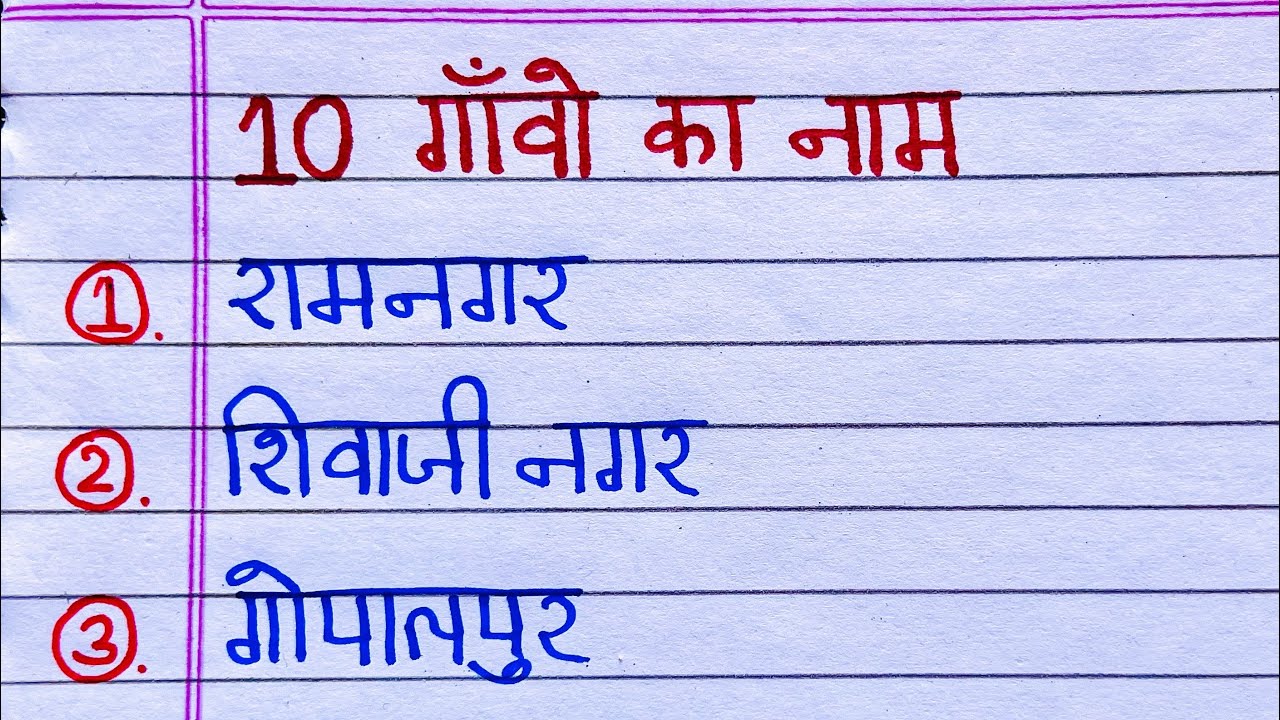 10 गाँवो का नाम
1. रामनगर
2. शिवाजी नगर
3. गोपालपुर